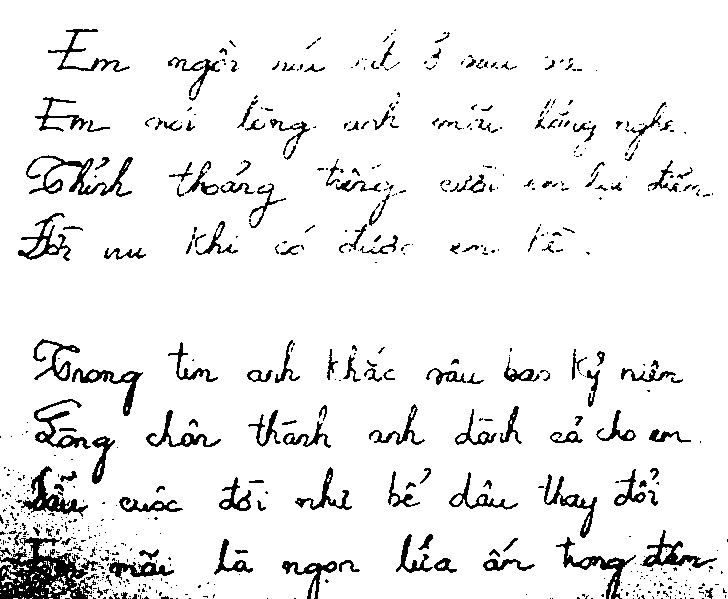 Em ngồi ríu rít ở sau xe
Em nói lòng anh mãi lắng nghe
Thỉnh thoảng tiếng cười em lại điểm
Đời vui khi có được em kề.
Trong tim anh khắc sâu bao kỷ niệm
Lòng chân thành anh dành cả cho em
Dẫu cuộc đời như bể dâu thay đổi
Em mãi là ngọn lửa ấm trong đêm.